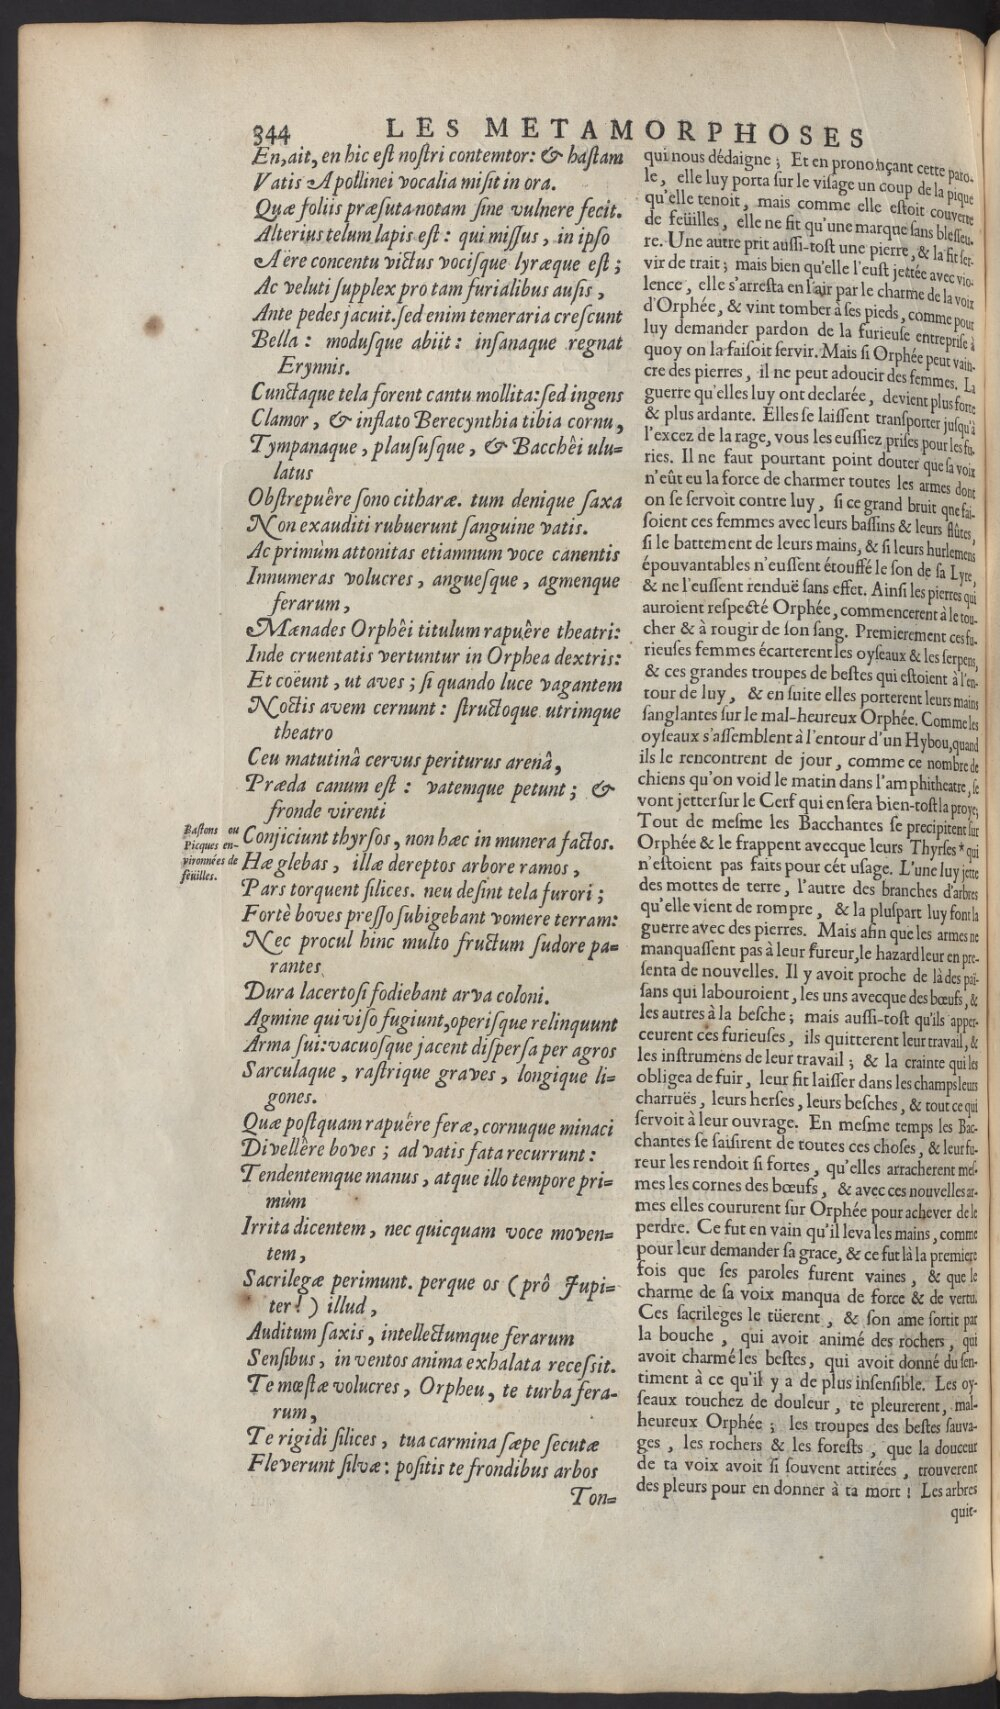 344 LES METAMORPHOSES
En, ait, en hic eſt noſtri contemtor: & haſtam
Vatis Apollinei vocalia miſit in ora.
Quæ foliis præſuta notam ſine vulnere fecit.
Alterius telum lapis eſt: qui miſſus, in ipſo
Aëre concentu victus vocisque lyræque eſt;
Ac veluti ſupplex pro tam furialibus auſis,
Ante pedes jacuit. ſed enim temeraria creſcunt
Bella: modusque abiit: inſanaque regnat
Erynnis.
Cunctaque tela forent cantu mollita: ſed ingens
Clamor, & inflato Berecynthia tibia cornu,
Tympanaque, plauſusque, & Bacchêi ulu-
latus
Obſtrepuêre ſono citharæ. tum denique ſaxa
Non exauditi rubuerunt ſanguine vatis.
Ac primùm attonitas etiamnum voce canentis
Innumeras volucres, anguesque, agmenque
ferarum,
Mænades Orphêi titulum rapuêre theatri:
Inde cruentatis vertuntur in Orphea dextris:
Et coëunt, ut aves; ſi quando luce vagantem
Noctis avem cernunt: ſtructoque utrimque
theatro
Ceu matutinâ cervus periturus arenâ,
Præda canum eſt: vatemque petunt; &
fronde virenti
Conjiciunt thyrſos, non hæc in munera factos.
Hæ glebas, illæ dereptos arbore ramos,
Pars torquent ſilices. neu deſint tela furori;
Fortè boves preſſo ſubigebant vomere terram:
Nec procul hinc multo fructum ſudore pa-
rantes
Dura lacertoſi fodiebant arva coloni.
Agmine qui viſo fugiunt, operisque relinquunt
Arma ſui: vacuosque jacent diſperſa per agros
Sarculaque, raſtrique graves, longique li-
gones.
Quæ poſtquam rapuêre feræ, cornuque minaci
Divellêre boves; ad vatis fata recurrunt:
Tendentemque manus, atque illo tempore pri-
mùm
Irrita dicentem, nec quicquam voce moven-
tem,
Sacrilegæ perimunt. perque os (prô Jupi-
ter!) illud,
Auditum ſaxis, intellectumque ferarum
Senſibus, in ventos anima exhalata receſſit.
Te mœſtæ volucres, Orpheu, te turba fera-
rum,
Te rigidi ſilices, tua carmina ſæpe ſecutæ
Fleverunt ſilvæ: poſitis te frondibus arbos
Ton-
Baſtons ou
Picques en-
vironnées de
feüilles.
qui nous dédaigne; Et en prononçant cette paro-
le, elle luy porta ſur le viſage un coup de la pique
qu'elle tenoit, mais comme elle eſtoit couverte
de feüilles, elle ne fit qu'une marque ſans bleſſeu-
re. Une autre prit auſſi-toſt une pierre, & la fit ſer-
vir de trait; mais bien qu'elle l'euſt jettée avec vio-
lence, elle s'arreſta en l'air par le charme de la voix
d'Orphée, & vint tomber à ſes pieds, comme pour
luy demander pardon de la furieuſe entrepriſe à
quoy on la faiſoit ſervir. Mais ſi Orphée peut vain-
cre des pierres, il ne peut adoucir des femmes. La
guerre qu'elles luy ont declarée, devient plus forte
& plus ardante. Elles ſe laiſſent tranſporter juſqu'à
l'excez de la rage, vous les euſſiez priſes pour les fu-
ries. Il ne faut pourtant point douter que ſa voix
n'eût eu la force de charmer toutes les armes dont
on ſe ſervoit contre luy, ſi ce grand bruit que fai-
ſoient ces femmes avec leurs baſſins & leurs flûtes,
ſi le battement de leurs mains, & ſi leurs hurlemens
épouvantables n'euſſent étouffé le ſon de ſa Lyre,
& ne l'euſſent renduë ſans effet. Ainſi les pierres qui
auroient reſpecté Orphée, commencerent à le tou-
cher & à rougir de ſon ſang. Premierement ces fu-
rieuſes femmes écarterent les oyſeaux & les ſerpens,
& ces grandes troupes de beſtes qui eſtoient à l'en-
tour de luy, & en ſuite elles porterent leurs mains
ſanglantes ſur le mal-heureux Orphée. Comme les
oyſeaux s'aſſemblent à l'entour d'un Hybou, quand
ils le rencontrent de jour, comme ce nombre de
chiens qu'on void le matin dans l'amphitheatre, ſe
vont jetter ſur le Cerf qui en ſera bien-toſt la proye;
Tout de meſme les Bacchantes ſe precipitent ſur
Orphée & le frappent avecque leurs Thyrſes* qui
n'eſtoient pas faits pour cét uſage. L'une luy jette
des mottes de terre, l'autre des branches d'arbres
qu'elle vient de rompre, & la pluſpart luy font la
guerre avec des pierres. Mais afin que les armes ne
manquaſſent pas à leur fureur, le hazard leur en pre-
ſenta de nouvelles. Il y avoit proche de là des paï-
ſans qui labouroient, les uns avecque des bœufs, &
les autres à la beſche; mais auſſi-toſt qu'ils apper-
ceurent ces furieuſes, ils quitterent leur travail, &
les inſtrumens de leur travail; & la crainte qui les
obligea de fuir, leur fit laiſſer dans les champs leurs
charruës, leurs herſes, leurs beſches, & tout ce qui
ſervoit à leur ouvrage. En meſme temps les Bac-
chantes ſe ſaiſirent de toutes ces choſes, & leur fu-
reur les rendoit ſi fortes, qu'elles arracherent meſ-
mes les cornes des bœufs, & avec ces nouvelles ar-
mes elles coururent ſur Orphée pour achever de le
perdre. Ce fut en vain qu'il leva les mains, comme
pour leur demander ſa grace, & ce fut là la premiere
fois que ſes paroles furent vaines, & que le
charme de ſa voix manqua de force & de vertu.
Ces ſacrileges le tüerent, & ſon ame ſortit par
la bouche, qui avoit animé des rochers, qui
avoit charmé les beſtes, qui avoit donné du ſen-
timent à ce qu'il y a de plus inſenſible. Les oy-
ſeaux touchez de douleur, te pleurerent, mal-
heureux Orphée; les troupes des beſtes ſauva-
ges, les rochers & les foreſts, que la douceur
de ta voix avoit ſi ſouvent attirées, trouverent
des pleurs pour en donner à ta mort! Les arbres
quit-